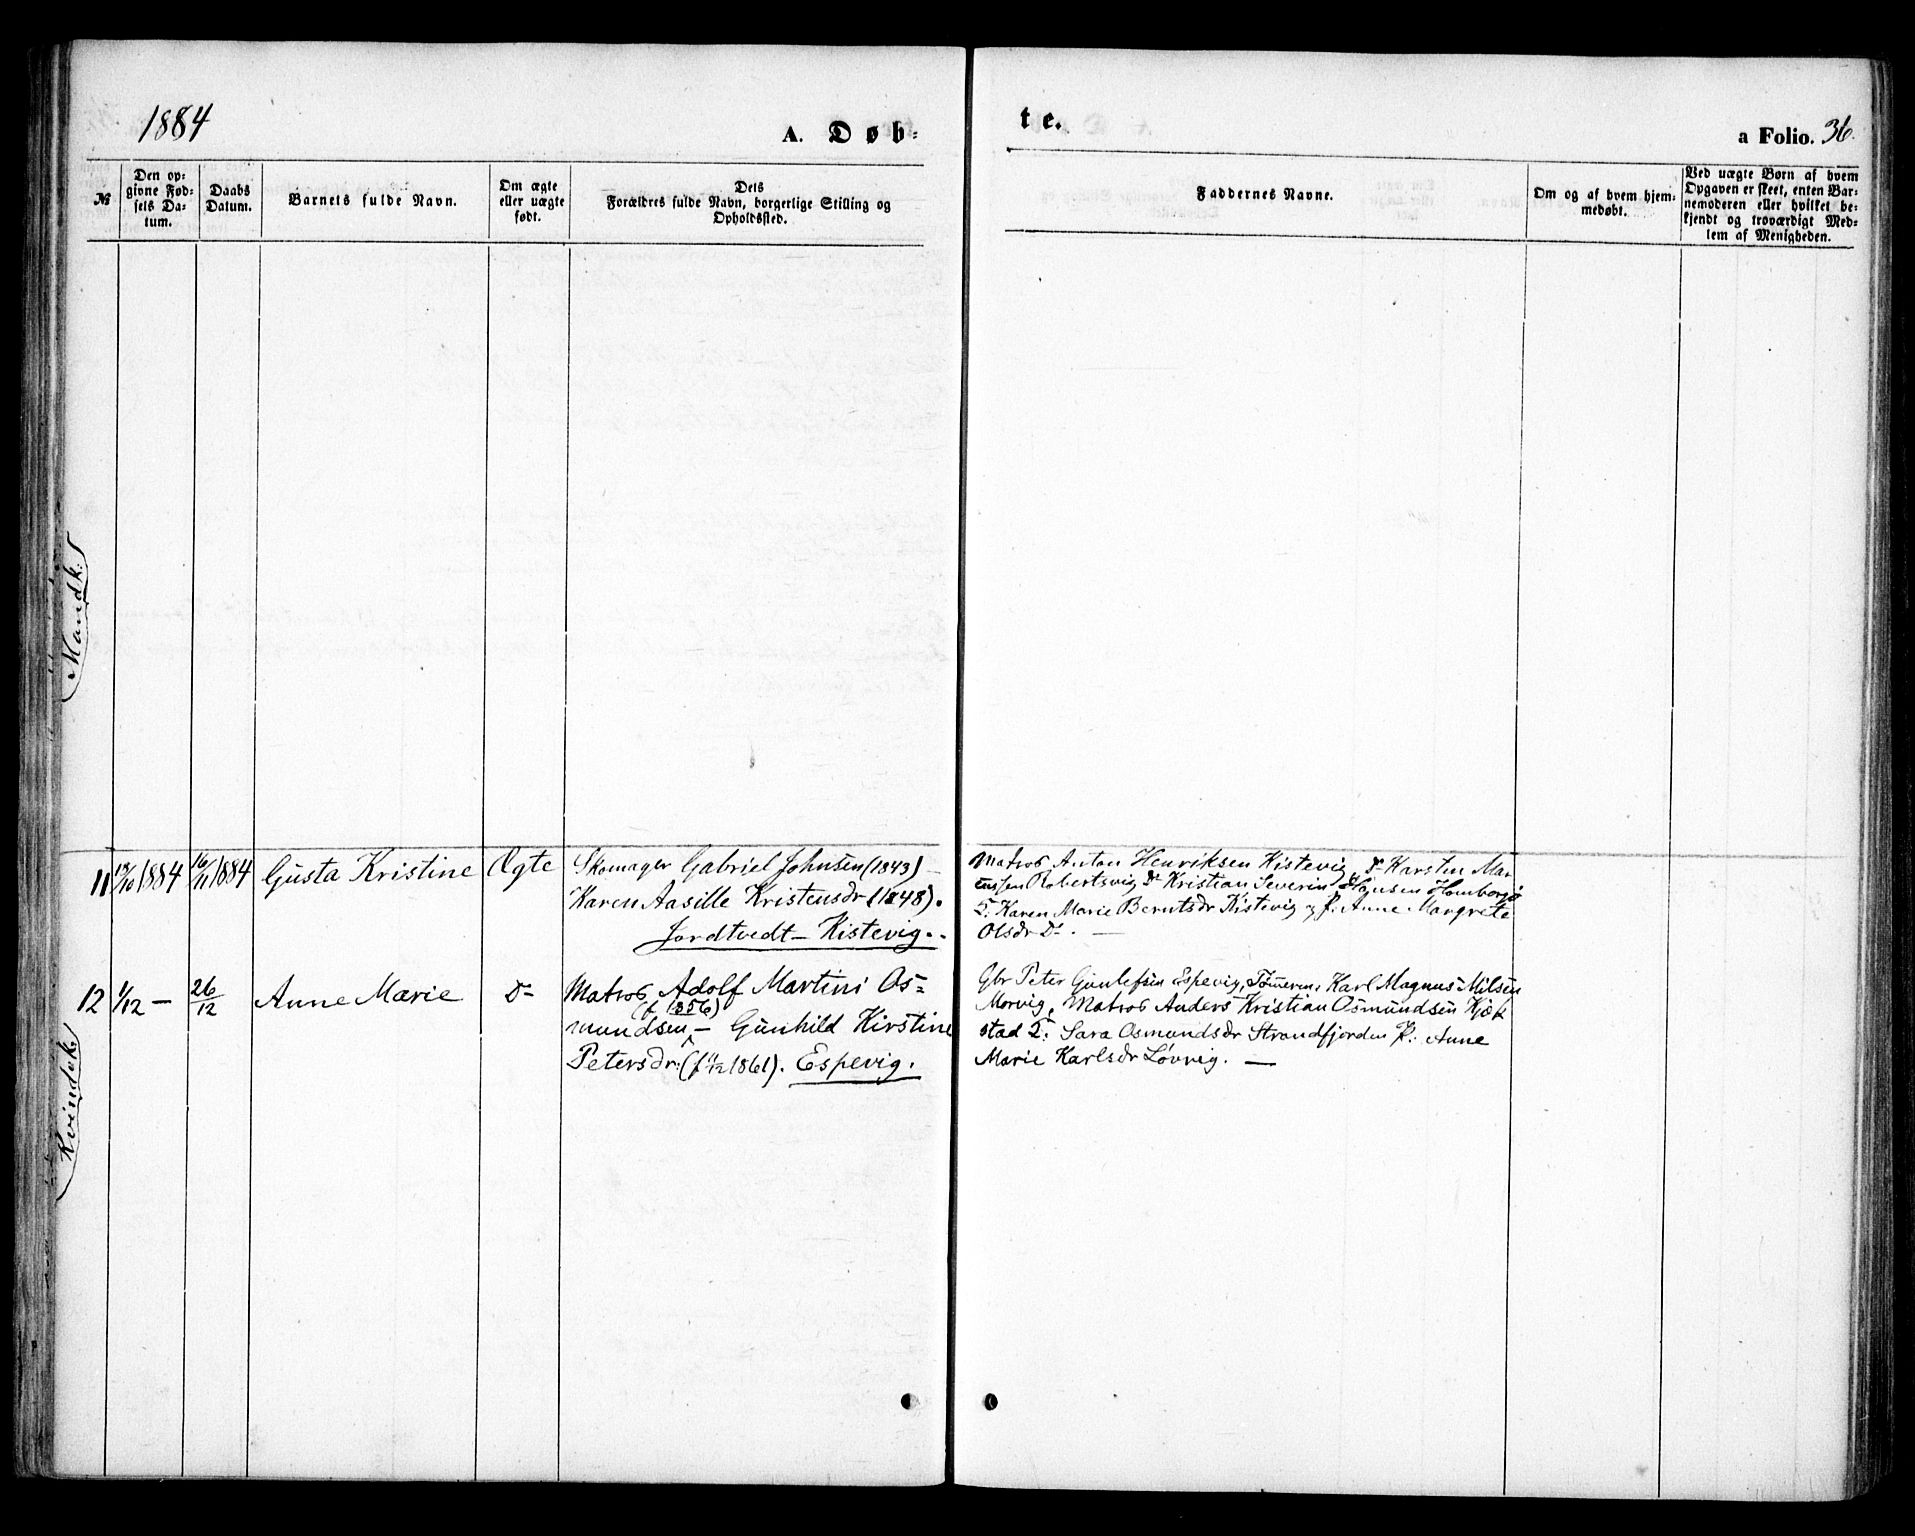 1884
A. Døb-
te.
a Folio. 36.
№
Den op-
givne Fød-
sels Da-
tum.
Daabs
Datum.
Barnets fulde Navn.
Om ægte
eller uægte
født.
Dets
Forældres fulde Navn, borgerlige Stilling og
Opholdssted.
Faddernes Navne.
Om og af hvem hjem-
medøbt.
Ved uægte Børn af hvem
Opgaven er skeet, enten Bar-
nemoderen eller hvilket be-
kjendt og troværdigt Med-
lem af Menigheden.
Mandk:
11 /10 1884 16/11 1884 Gusta Kristine Ægte Skomager Gabriel Johnsen (1843) –
Karen Aasille Kristensdr (1848).
Jordtvedt – Kistevig.
Matros Anton Henriksen Kistevig, Do Karsten Mar
ensen Robertsvig Do Kristian Severin Hansen Homborgø
T: Karen Marie Berntsdr Kistevig og P. Anne Margrete
Olsdr Do. —
Kvindek:
12 1/12 – 26/12 Anne Marie Do Matros Adolf Martini Os-
(f. 1856)
mundsen – Gunhild Kirstine
Petersdr: (f 1861). Espevig.
Gbr Peter Gunlefsen Espevig, Tømrerm. Karl Magnus Nilsen
Morvig, Matros Anders Kristian Osmundsen Kjæk
stad T: Sara Osmundsdr Strandfjorden P: Anne
Marie Karlsdr Løvrig. —